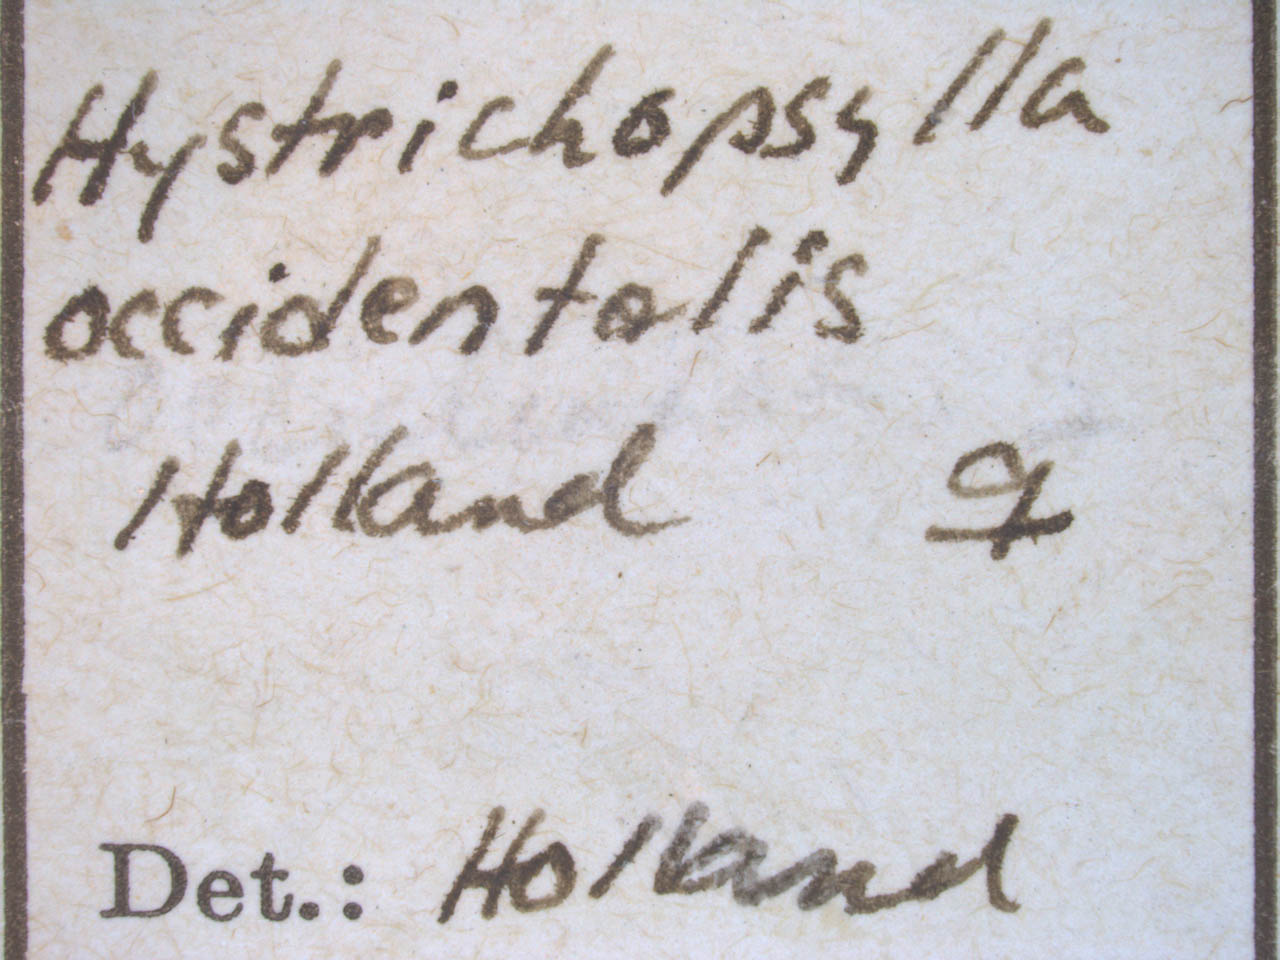 Hystrichopsylla
occidentalis
Holland ♀
Det.: Holland